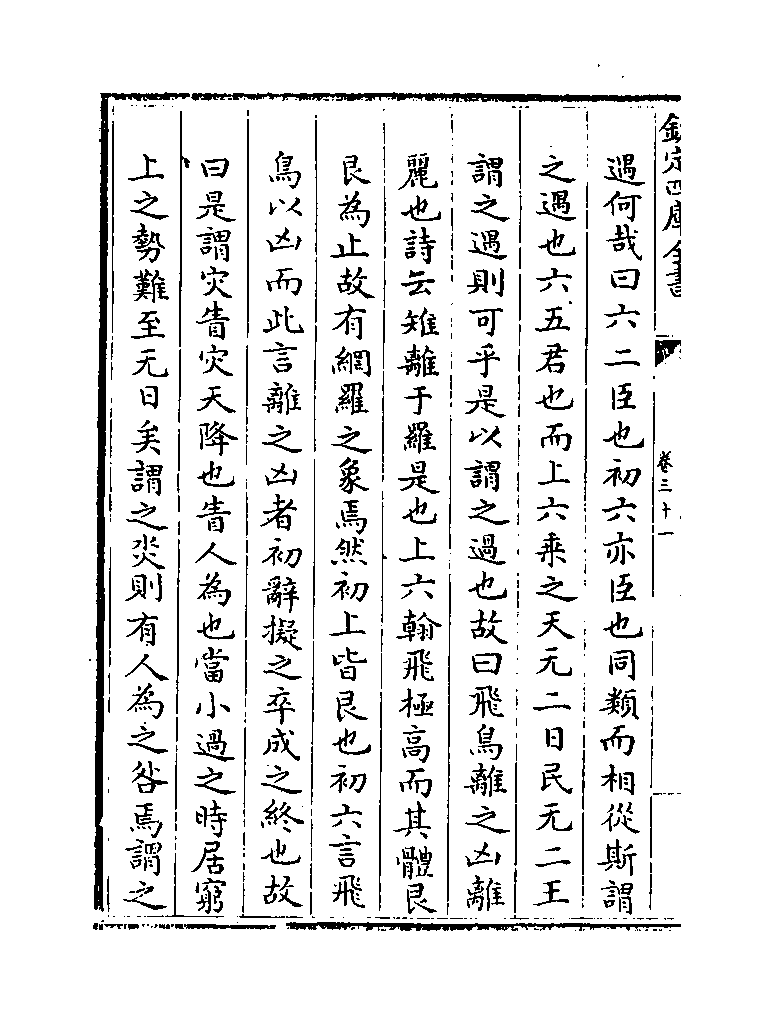 欽定四庫全書
卷三十一
遇何哉曰六二臣也初六亦臣也同類而相從斯謂
之遇也六五君也而上六乘之天无二日民无二王
謂之遇則可乎是以謂之過也故曰飛鳥離之凶離
麗也詩云雉離于羅是也上六翰飛極高而其體艮
艮為止故有網羅之象焉然初上皆艮也初六言飛
鳥以凶而此言離之凶者初辭擬之卒成之終也故
曰是謂灾眚灾天降也眚人為也當小過之時居窮
上之勢難至无日矣謂之灾則有人為之咎焉謂之